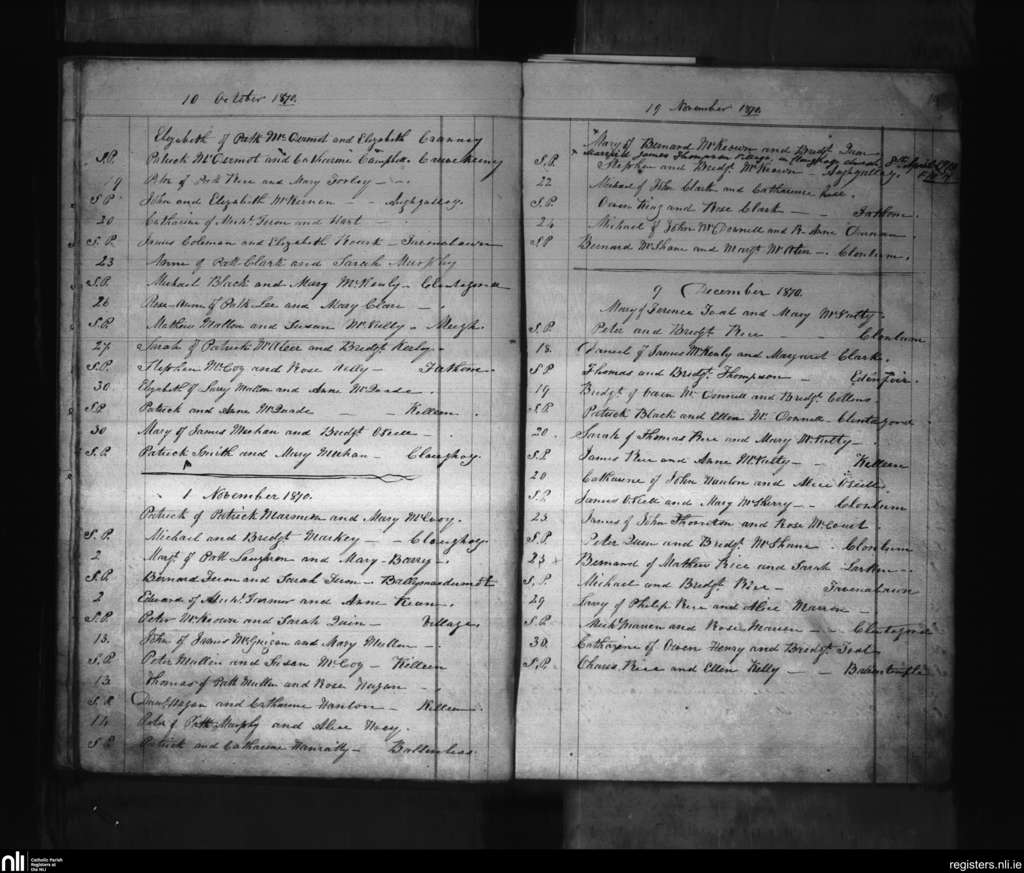 10 October 1870.
Elizabeth of Patk McDermot and Elizabeth Cranney
S.P. Patrick McDermot and Catherine Campbell
19 Peter of Patk Rice and Mary
S.P. John and Elizabeth McKernen - Aughgallog.
20 Catharine of Michl. and Hart -
S.P. James Coleman and Elizabeth Rourk - Farenalawn
23 Anne of Patk Clark and Sarah Murphy
S.P. Michael Black and Mary McKenly - Clontagord
26 Rose Anne of Patk Lee and Mary Clare -
S.P. Mathew Mallon and Susan McNully - Meigh.
27. Sarah of Patrick McAleer and Bridgt
S.P. Stephen McCoy and Rose Kelly - Fathom.
30. Elizabeth of Larry Mullen and Anne McQuade -
S.P. Patrick and Anne McQuade - - Killeen
30 Mary of James Meehan and Bridgt O'Neill -
S.P. Patrick Smith and Mary Meehan - Cloughog.
1 November 1870.
Patrick of Patrick and Mary McEvoy.
S.P. Michael and Bridgt Markey - Cloughog.
2 Margt. of Patk Loughron and Mary Barry -
S.P. Bernard and Sarah
2 Edward of Michl. and Anne Kean.
S.P. Peter McKeown and Sarah Quin - Village
13. John of James McGrigan and Mary Mullen -
S.P. Peter Mullin and Susan McCoy - Killeen
13 Thomas of Patk Mullen and Rose Hagan -
S.P. Hagan and Catharine Hanlon - Killeen
14 Peter of Patk Murphy and Alice
S.P. Patrick and Catharine
19 November 1870.
Mary of Bernard McKeown and Bridgt
Married James Thompson in Cloughoge church 8th April
S.P. Stephen and Bridgt McKeown - Aughgallog.
22 Michael of John Clark and Catharine
S.P. Owen King and Rose Clark - - Fathom.
24 Michael of John McDonnell and Anne
S.P. Bernard McShane and Margt - Clonlum.
9 December 1870.
Mary of Terence Toal and Mary McNulty -
S.P. Peter and Bridgt Rice - Clonlum
18. Daniel of James McKenly and Margaret Clark.
S.P. Thomas and Bridgt Thompson - Edenfoir.
19 Bridgt of Owen McConnell and Bridgt Collens
S.P. Patrick Black and Ellen McConnell - Clontagord
20. Sarah of Thomas Rice and Mary McNulty -
S.P. James Rice and Anne McNulty - Killeen
20 Catharine of John Hanlon and Alice O'Neill.
S.P. James O'Neill and Mary McSherry - Clonlum
23 James of John Thornton and Rose McCourt
S.P. Peter Quin and Bridgt McShane - Clonlum
25 Bernard of Mathew Rice and Sarah Larkin -
S.P. Michael and Bridgt Rice - Farenalawn
29 Larry of Philip Rice and Alice Marron -
S.P. Michl Marron and Rose Marron - Clontagord
30. Catharine of Owen Henry and Bridgt Toal
S.P. Charles Rice and Ellen Kelly -
nli
Catholic Parish
Registers at
the NLI
registers.nli.ie